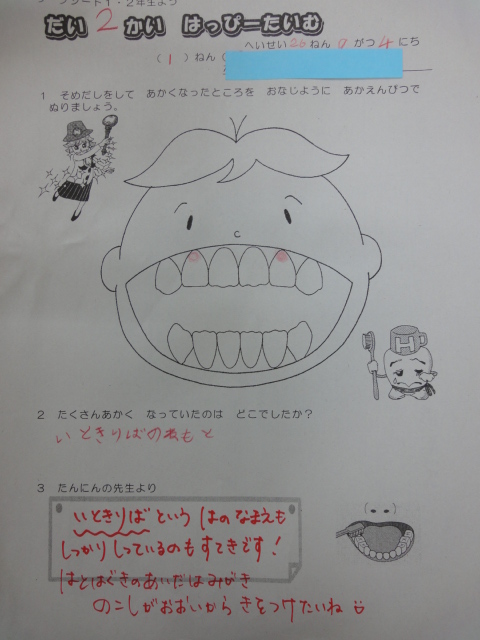 ワークシート1・2年生よう
だい 2 かい はっぴーたいむ
へいせい 26 ねん 9 がつ 4 にち
( 1 ) ねん (
1 そめだしをして あかくなったところを おなじように あかえんぴつで
ぬりましょう。
H
2 たくさんあかく なっていたのは どこでしたか?
いときりばのねもと
3 たんにんの先生より
いときりばという はのなまえも
しっかりしっているのもすてきです!
はとはぐきのあいだはみがき
のこしがおおいから きをつけたいね